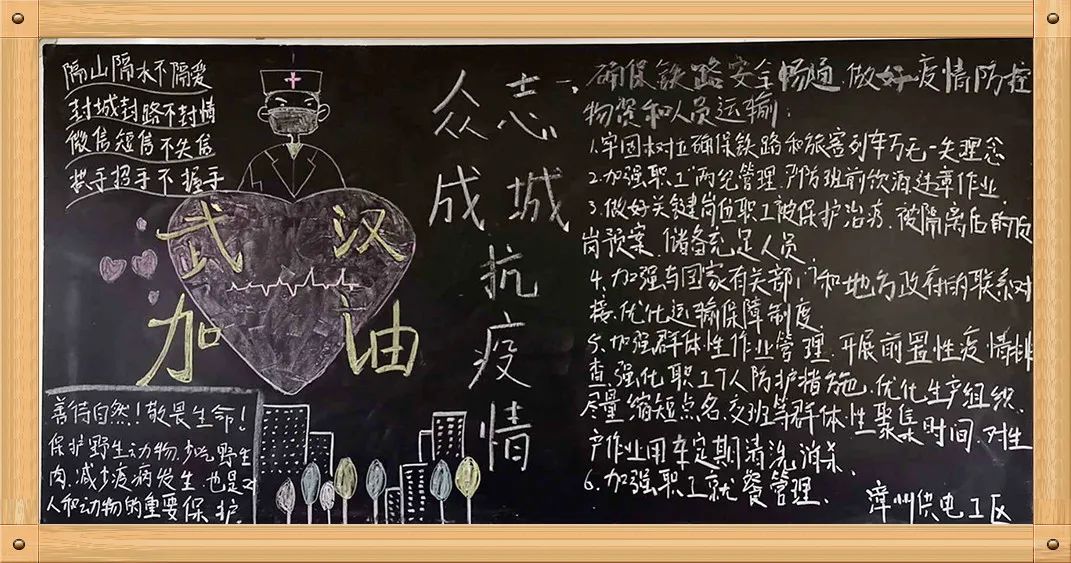 隔山隔水不隔爱
封城封路不封情
微信短信不失信
挥手招手不握手
武汉
加油
众志
成城
抗
疫
情
善待自然！敬畏生命！
保护野生动物，少吃野生
肉，减少疫病发生，也是对
人和动物的重要保护
一、确保铁路安全畅通，做好疫情防控
物资和人员运输：
1.牢固树立确保铁路和旅客列车万无一失理念
2.加强职工"两纪"管理，严防班前饮酒违章作业
3.做好关键岗位职工被保护治疗、被隔离后的顶
岗预案，储备充足人员
4.加强与国家有关部门和地方政府的联系对
接，优化运输保障制度
5.加强群体性作业管理，开展前置性疫情排
查，强化职工个人防护措施，优化生产组织，
尽量缩短点名、交班等群体性聚集时间，对生
产作业用车定期清洗、消杀.
6.加强职工就餐管理.
漳州供电工区